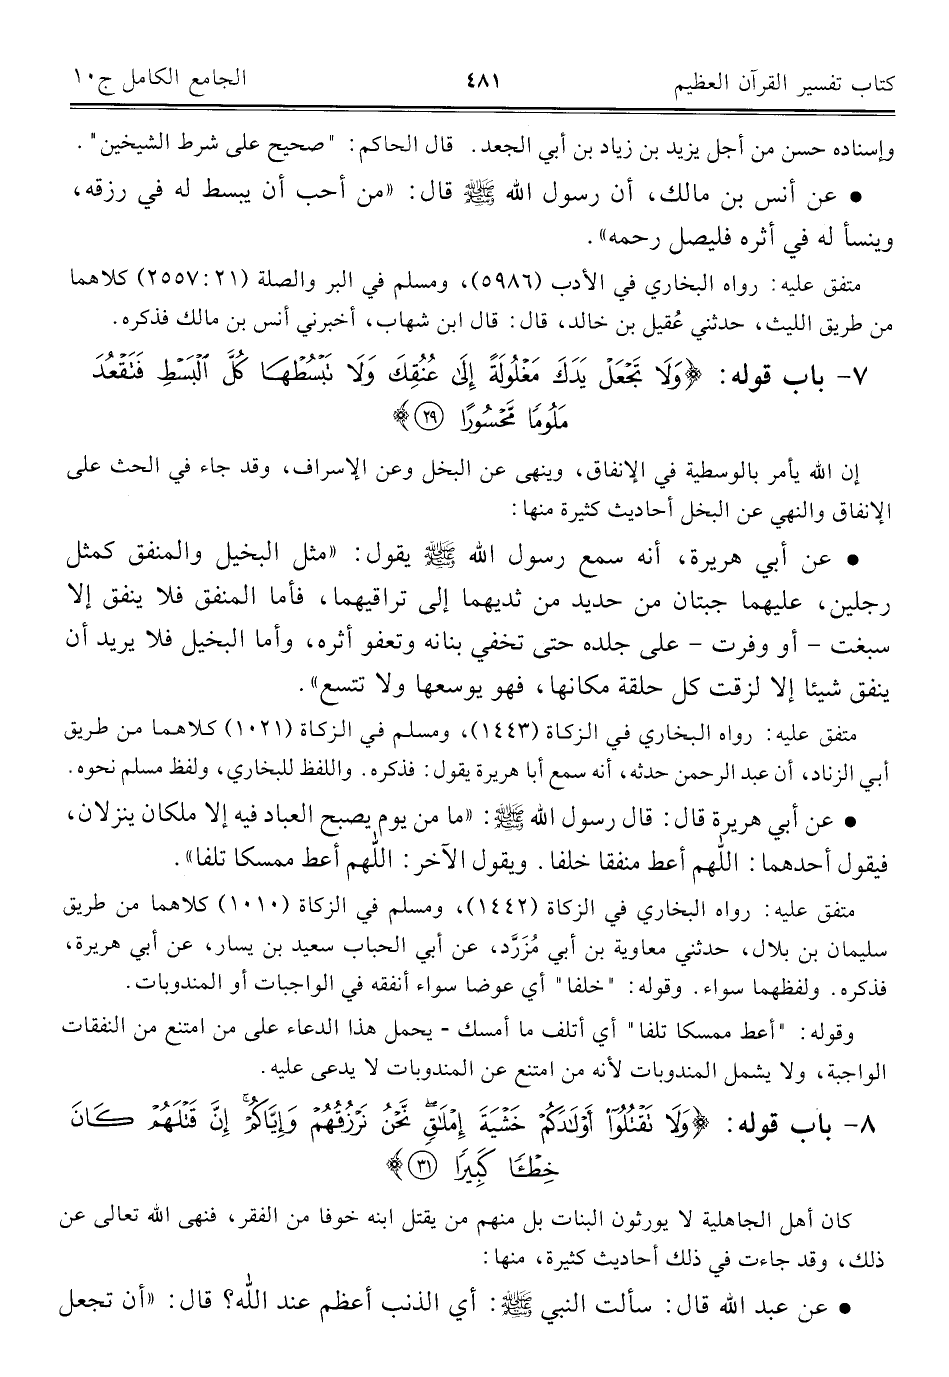 كتاب تفسير القرآن العظيم ٤٨١ الجامع الكامل ج١٠
وإسناده حسن من أجل يزيد بن زياد بن أبي الجعد. قال الحاكم: "صحيح على شرط الشيخين".
• عن أنس بن مالك، أن رسول الله ﷺ قال: «من أحب أن يبسط له في رزقه،
وينسأ له في أثره فليصل رحمه».
متفق عليه: رواه البخاري في الأدب (٥٩٨٦)، ومسلم في البر والصلة (٢٥٥٧:٢١) كلاهما
من طريق الليث، حدثني عُقيل بن خالد، قال: قال ابن شهاب، أخبرني أنس بن مالك فذكره.
٧- باب قوله: ﴿وَلَا تَجْعَلْ يَدَكَ مَغْلُولَةً إِلَىٰ عُنُقِكَ وَلَا تَبْسُطْهَا كُلَّ ٱلْبَسْطِ فَتَقْعُدَ
مَلُومًا مَّحْسُورًا ٢٩﴾
إن الله يأمر بالوسطية في الإنفاق، وينهى عن البخل وعن الإسراف، وقد جاء في الحث على
الإنفاق والنهي عن البخل أحاديث كثيرة منها:
• عن أبي هريرة، أنه سمع رسول الله ﷺ يقول: «مثل البخيل والمنفق كمثل
رجلين، عليهما جبتان من حديد من ثديهما إلى تراقيهما، فأما المنفق فلا ينفق إلا
سبغت - أو وفرت - على جلده حتى تخفي بنانه وتعفو أثره، وأما البخيل فلا يريد أن
ينفق شيئا إلا لزقت كل حلقة مكانها، فهو يوسعها ولا تتسع».
متفق عليه: رواه البخاري في الزكاة (١٤٤٣)، ومسلم في الزكاة (١٠٢١) كلاهما من طريق
أبي الزناد، أن عبد الرحمن حدثه، أنه سمع أبا هريرة يقول: فذكره. واللفظ للبخاري، ولفظ مسلم نحوه.
• عن أبي هريرة قال: قال رسول الله ﷺ: «ما من يوم يصبح العباد فيه إلا ملكان ينزلان،
فيقول أحدهما: اللّٰهم أعط منفقا خلفا. ويقول الآخر: اللّٰهم أعط ممسكا تلفا».
متفق عليه: رواه البخاري في الزكاة (١٤٤٢)، ومسلم في الزكاة (١٠١٠) كلاهما من طريق
سليمان بن بلال، حدثني معاوية بن أبي مُزَرَّد، عن أبي الحباب سعيد بن يسار، عن أبي هريرة،
فذكره. ولفظهما سواء. وقوله: "خلفا" أي عوضا سواء أنفقه في الواجبات أو المندوبات.
وقوله: "أعط ممسكا تلفا" أي أتلف ما أمسك - يحمل هذا الدعاء على من امتنع من النفقات
الواجبة، ولا يشمل المندوبات لأنه من امتنع عن المندوبات لا يدعى عليه.
٨- باب قوله: ﴿وَلَا تَقْتُلُوٓا۟ أَوْلَٰدَكُمْ خَشْيَةَ إِمْلَٰقٍ ۖ نَّحْنُ نَرْزُقُهُمْ وَإِيَّاكُمْ ۚ إِنَّ قَتْلَهُمْ كَانَ
خِطْـًٔا كَبِيرًا ٣١﴾
كان أهل الجاهلية لا يورثون البنات بل منهم من يقتل ابنه خوفا من الفقر، فنهى الله تعالى عن
ذلك، وقد جاءت في ذلك أحاديث كثيرة، منها:
• عن عبد الله قال: سألت النبي ﷺ: أي الذنب أعظم عند اللّٰه؟ قال: «أن تجعل